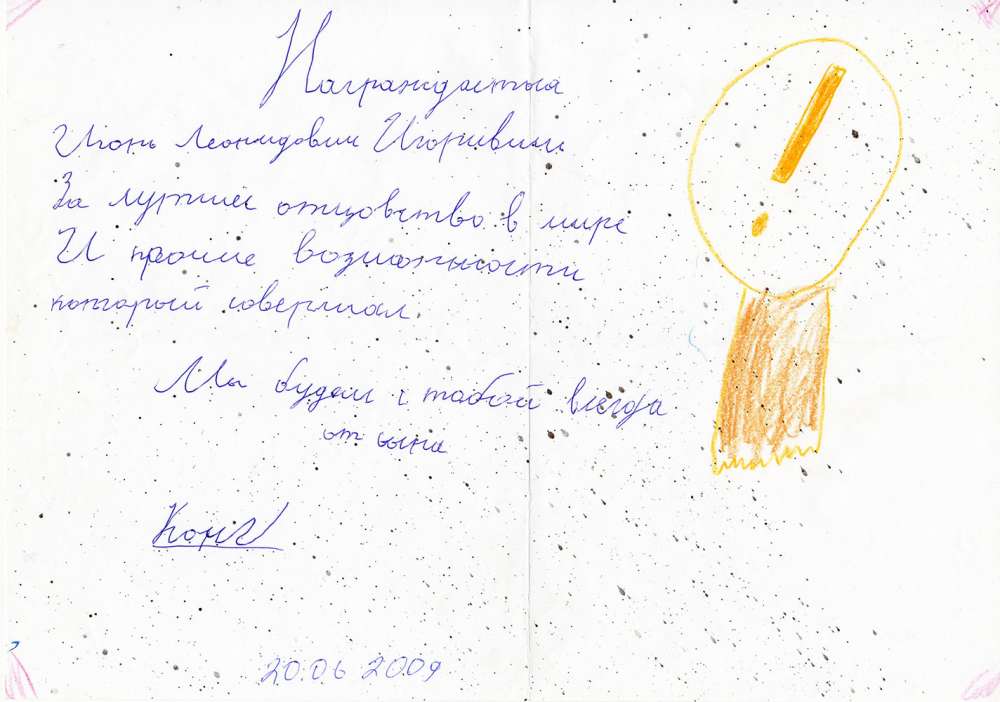 Награждается
Игорь Леонидович Игоривич
За лутшее отцовство в мире
И прочие возможности
который совершал.
Мы будем с табой всегда
от сына
20.06 2009